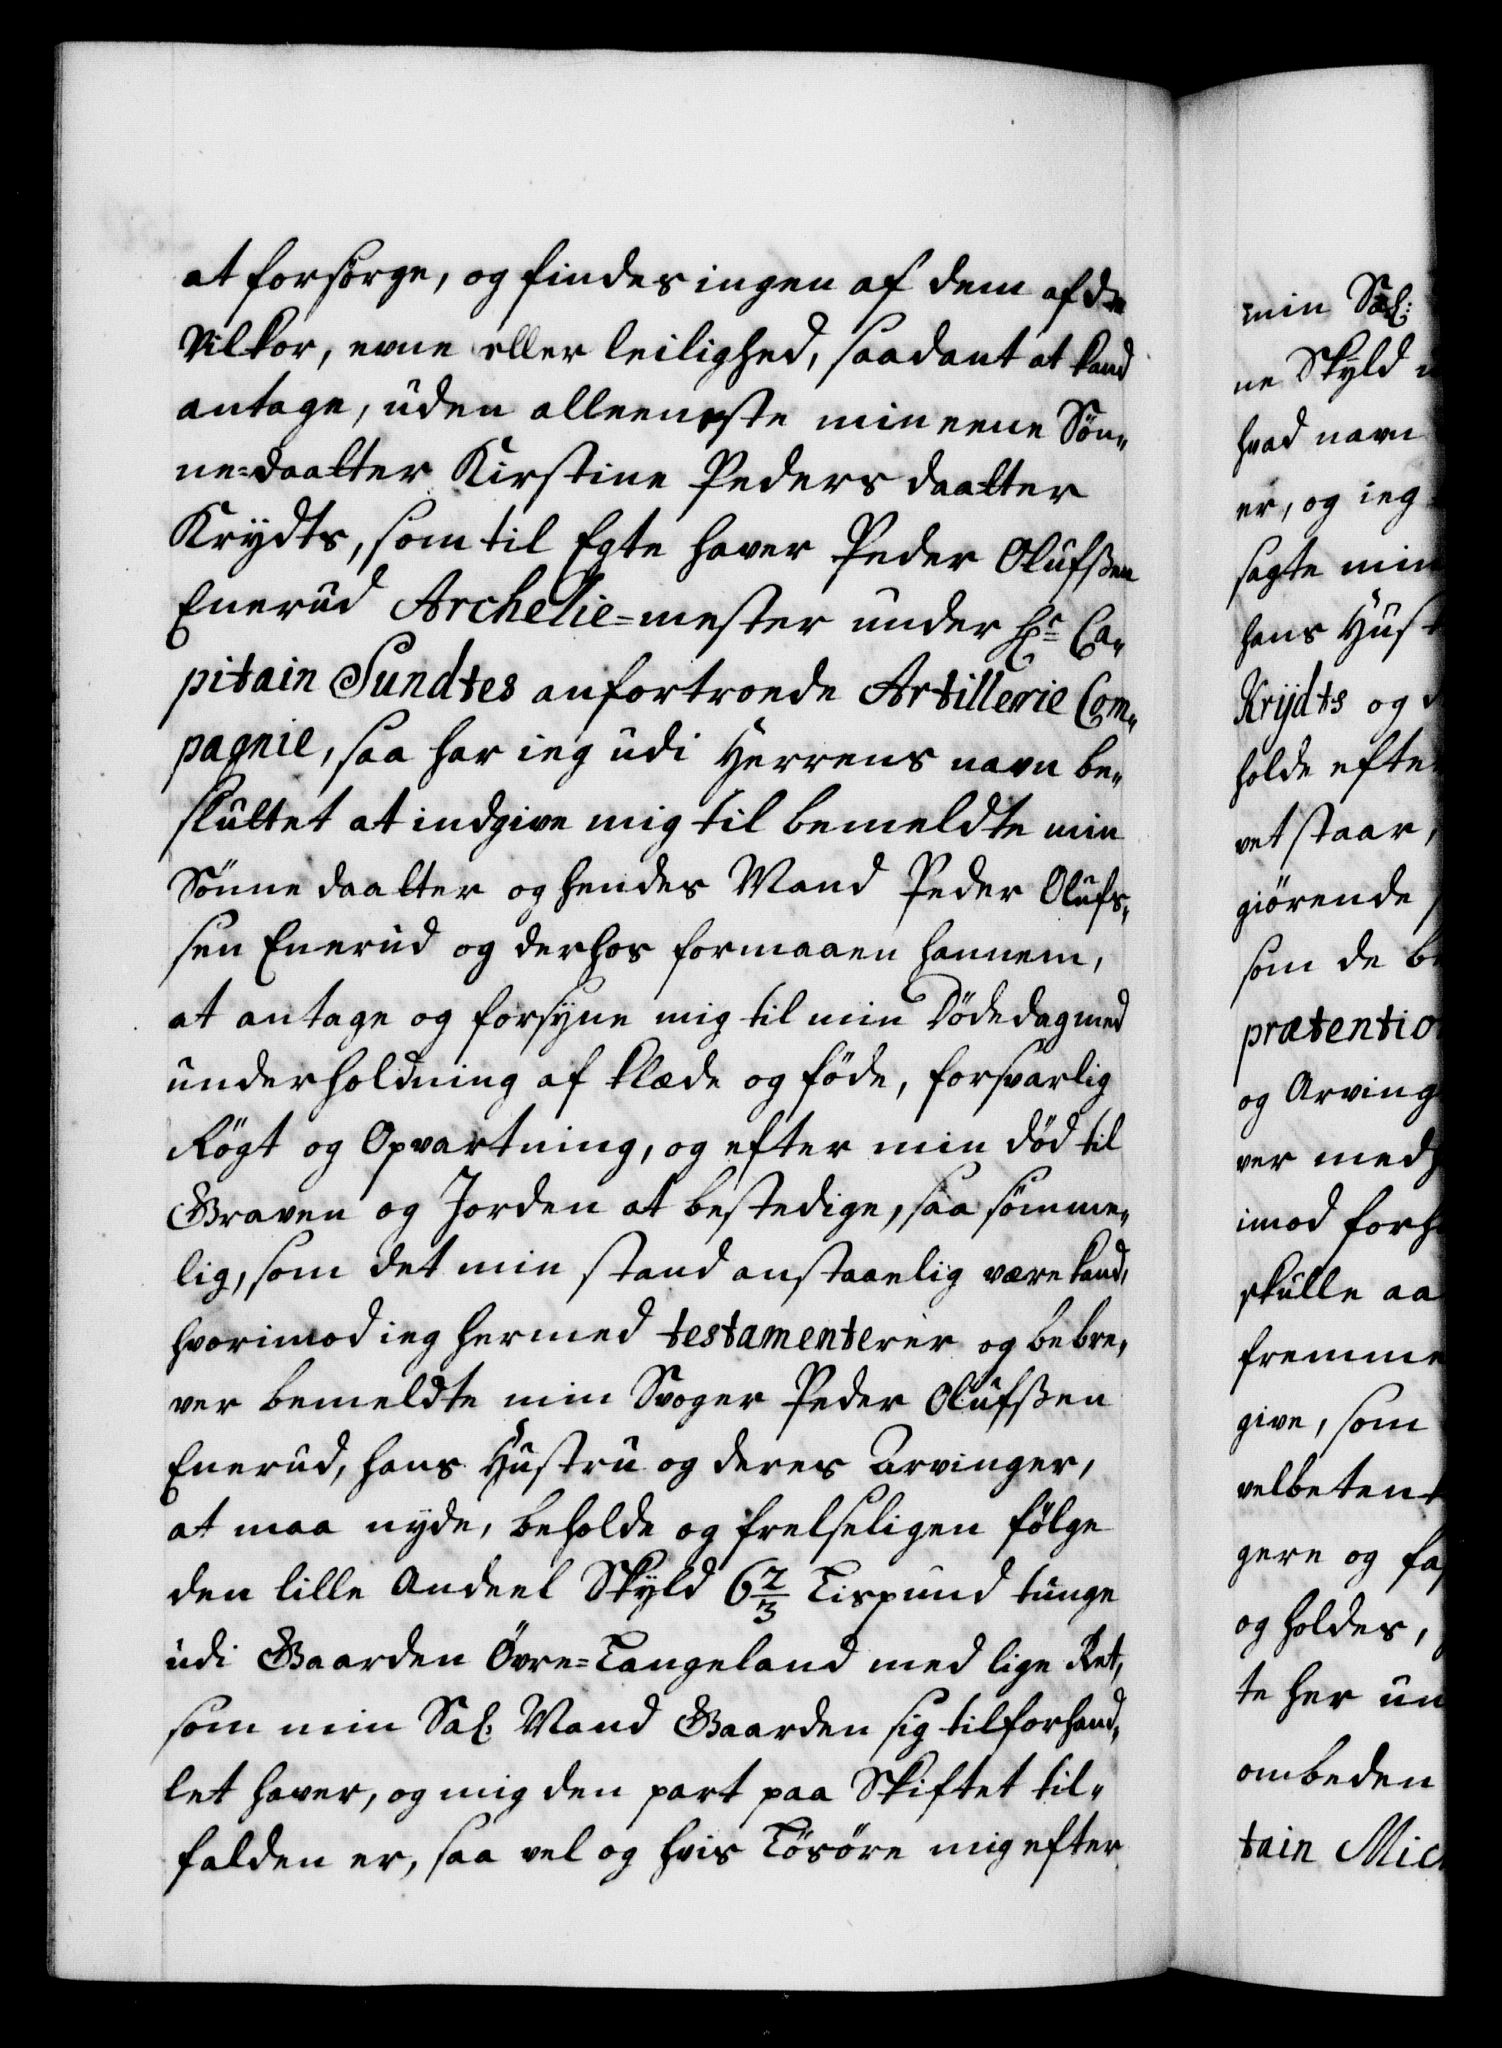 at forsörge, og findes ingen af dem af de
Vilkor, evne eller leilighed, saadant at kand
antage, uden alleeneste min eene Sön„
ne=daatter Kirstine Peders daatter
Krydts, som til Egte haver Peder Olufßen
Enerud Archelie=mester under Hr Ca„
pitain Sundtes anfortroede Artillerie Com„
pagnie, saa har ieg udi Herrens navn be„
sluttet at indgive mig til bemeldte min
Sönne daatter og hendes Mand Peder Olufs„
sen Enerud og derhos formaaen hannem,
at antage og forsyne mig til min Dödedag med
underholdning af klæde og föde, forsvarlig
Rögt og Opvartning, og efter min död til
Graven og Jorden at bestedige, saa sömme„
lig, som det min stand anstaaelig være kand,
hvorimod ieg hermed testamenterer og bebre„
ver bemeldte min Svoger Peder Olufßen
Enerud, hans Hustru og deres Arvinger,
at maa nyde, beholde og frelseligen fölge
den lille Andeel Skyld 6 2/3 Lispund tunge
udi Gaarden Övre=Langeland med lige Ret,
som min Sal. Mand Gaarden sig tilforhand„
let haver, og mig den part paa Skiftet til„
falden er, saa vel og hvis Lösöre mig efter
min Sal:
ne Skyld
hvad navn
er, og ieg
sagte min
hans Hust
Krydts og
holde efter
vet staar,
giörende
som de be
prætentio
og Arving
ver med
imod forh
skulle aa
fremme
give, som
velbeten
gere og fa
og holdes,
te her un
ombeden
tain Mich